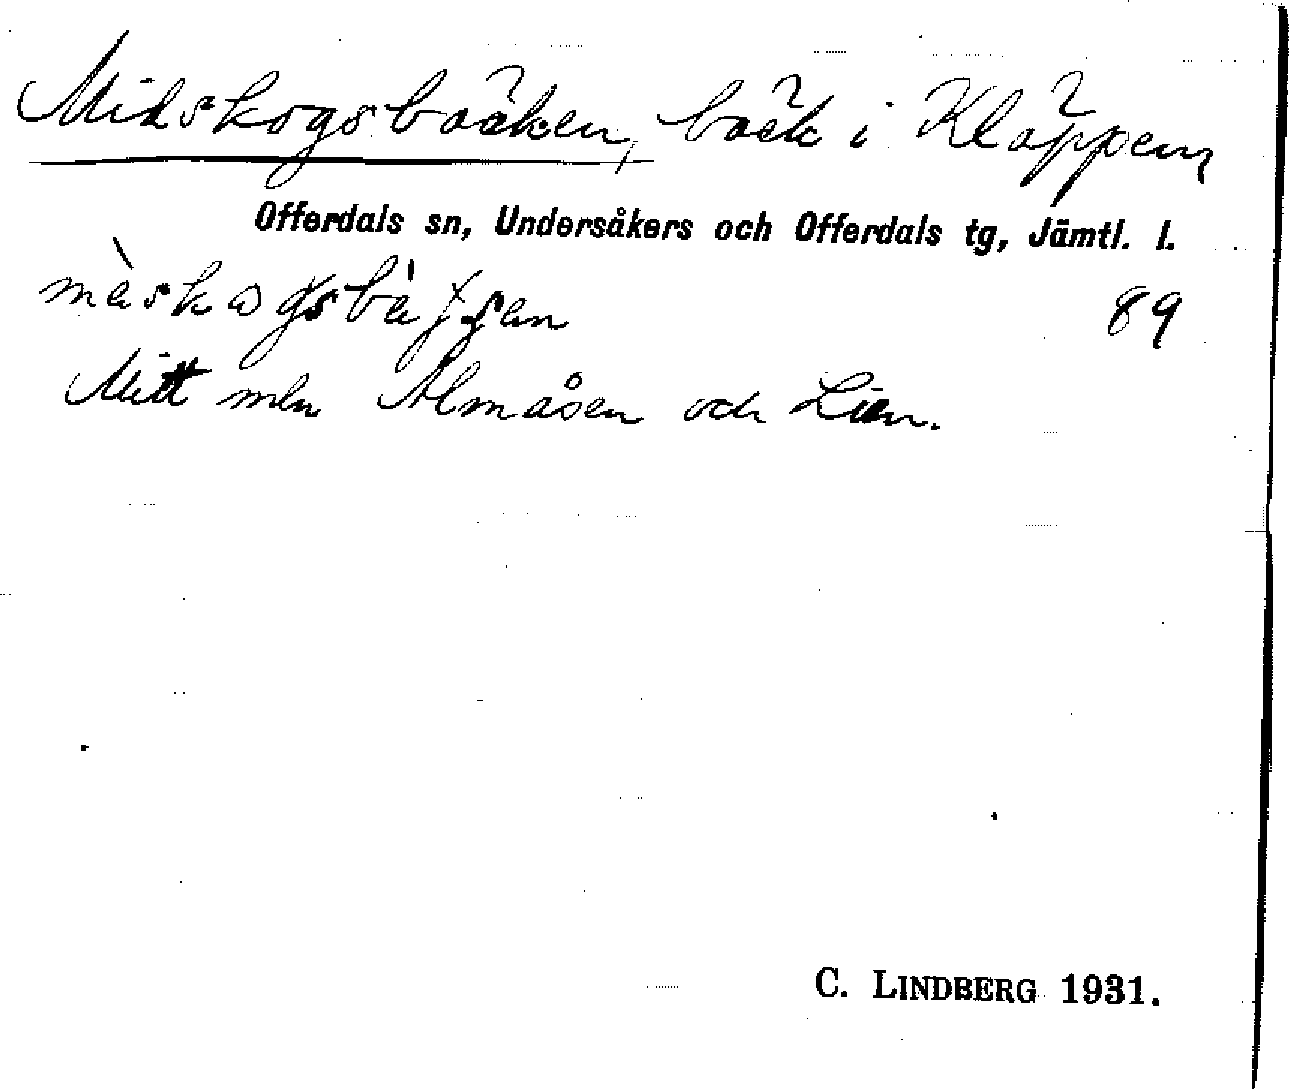 Midskogsbäcken, bäck i Kläppen
Offerdals sn, Undersåkers och Offerdals tg, Jämtl. l.
89
Mitt mln Almåsen och Lien.
C. LINDBERG 1931.